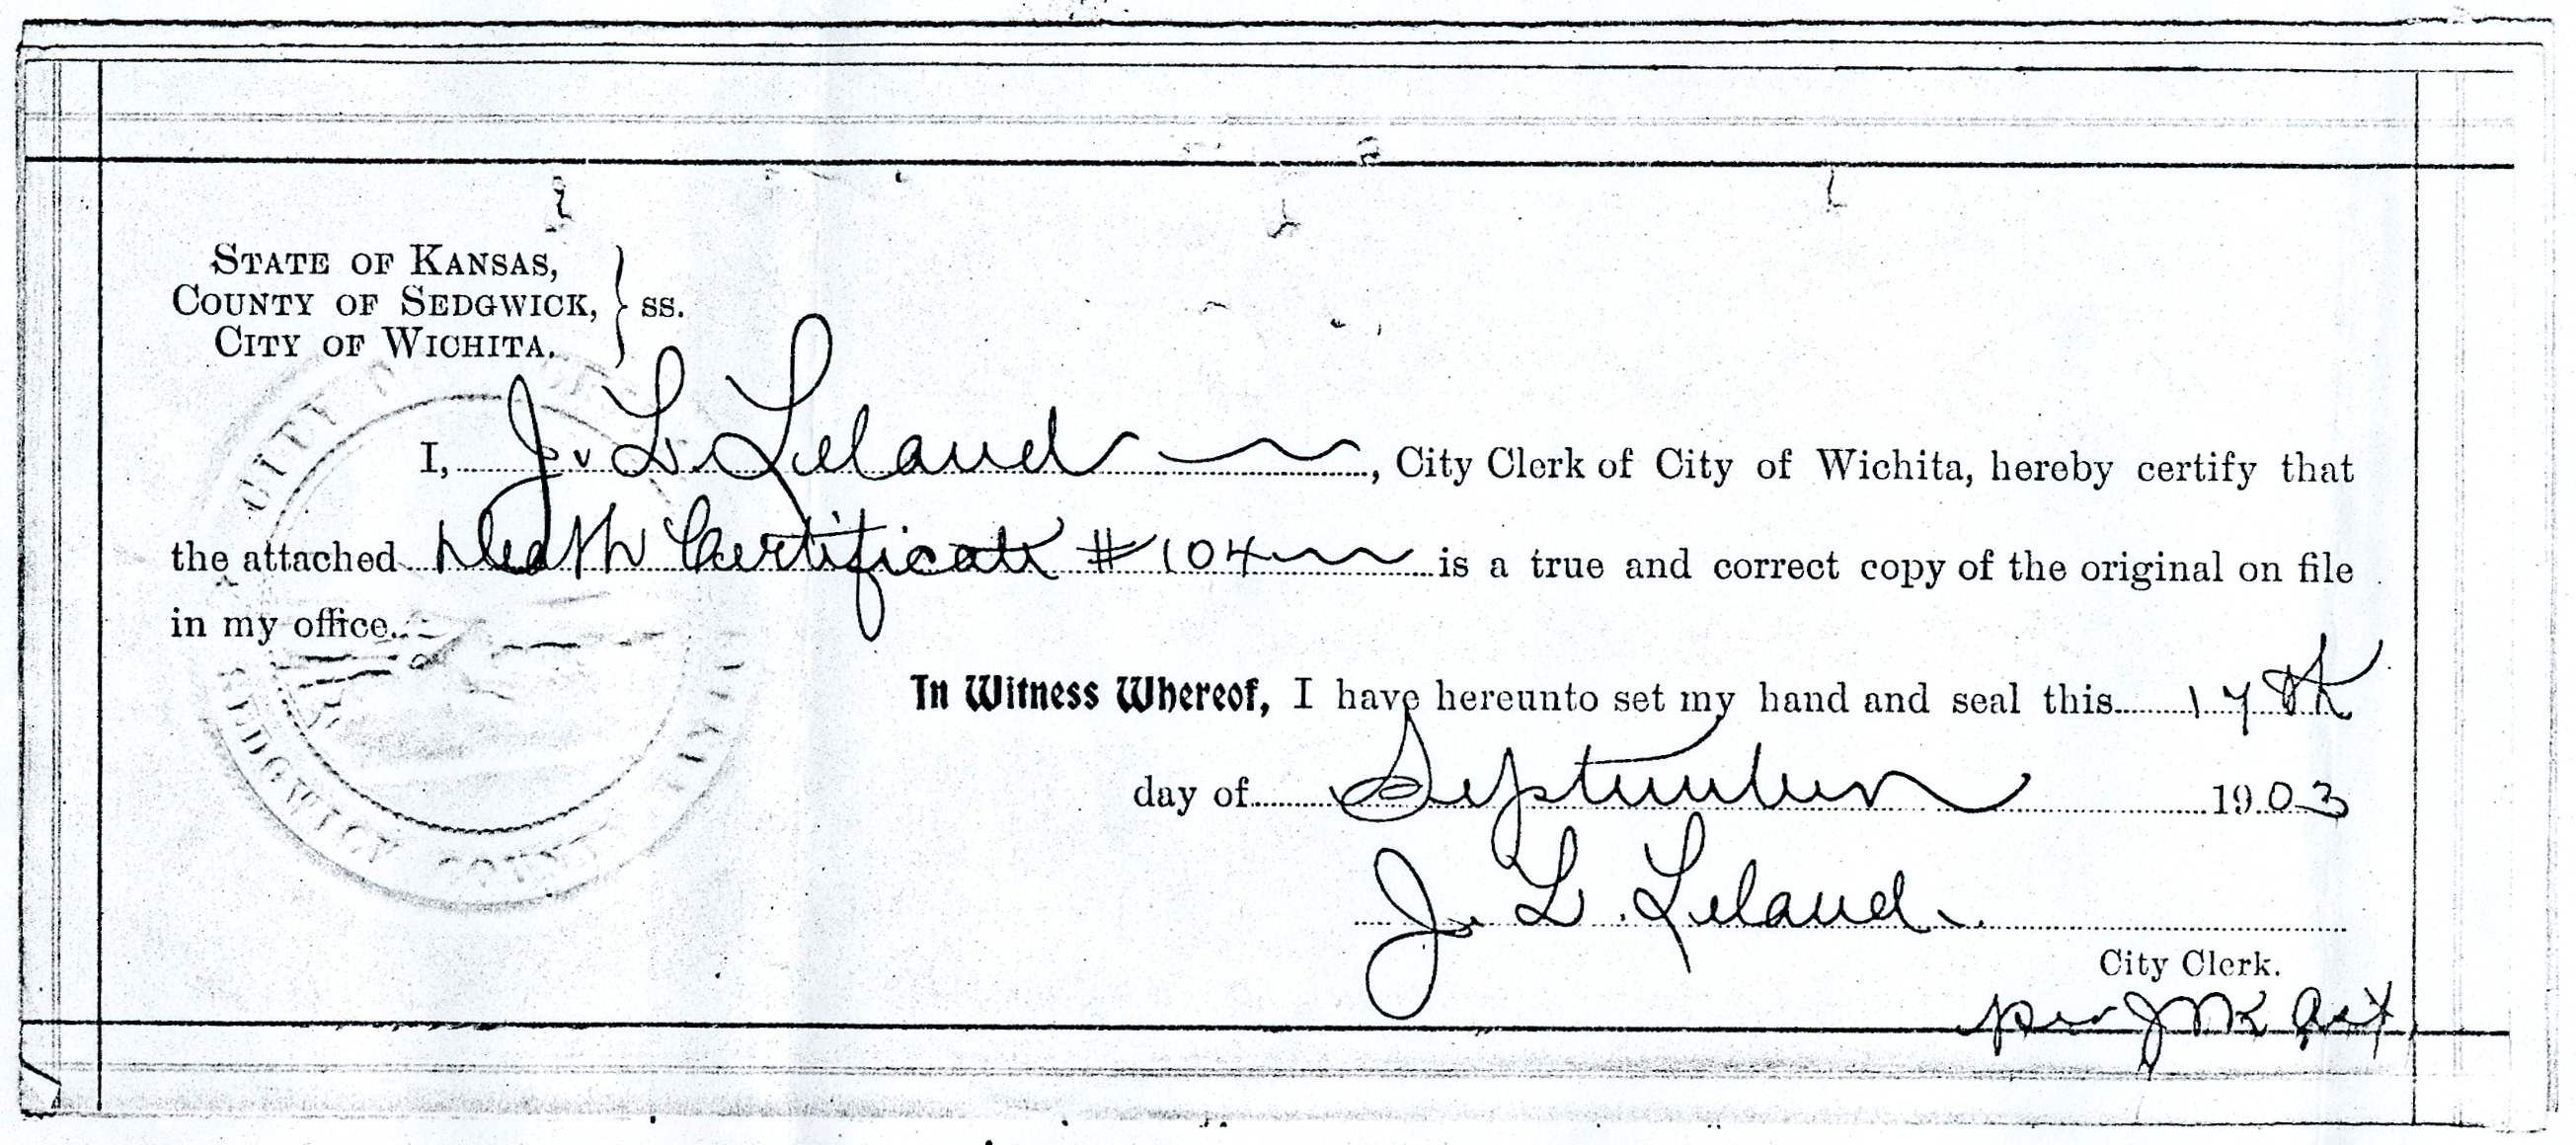 STATE OF KANSAS,
COUNTY OF SEDGWICK, } ss.
CITY OF WICHITA.
I, J. L. Leland, City Clerk of City of Wichita, hereby certify that
the attached Death Certificate #104 is a true and correct copy of the original on file
in my office.
In Witness Whereof, I have hereunto set my hand and seal this 17th
day of September 1903
J. L. Leland.
City Clerk.
per
CITY
SEDGWICK COUNTY